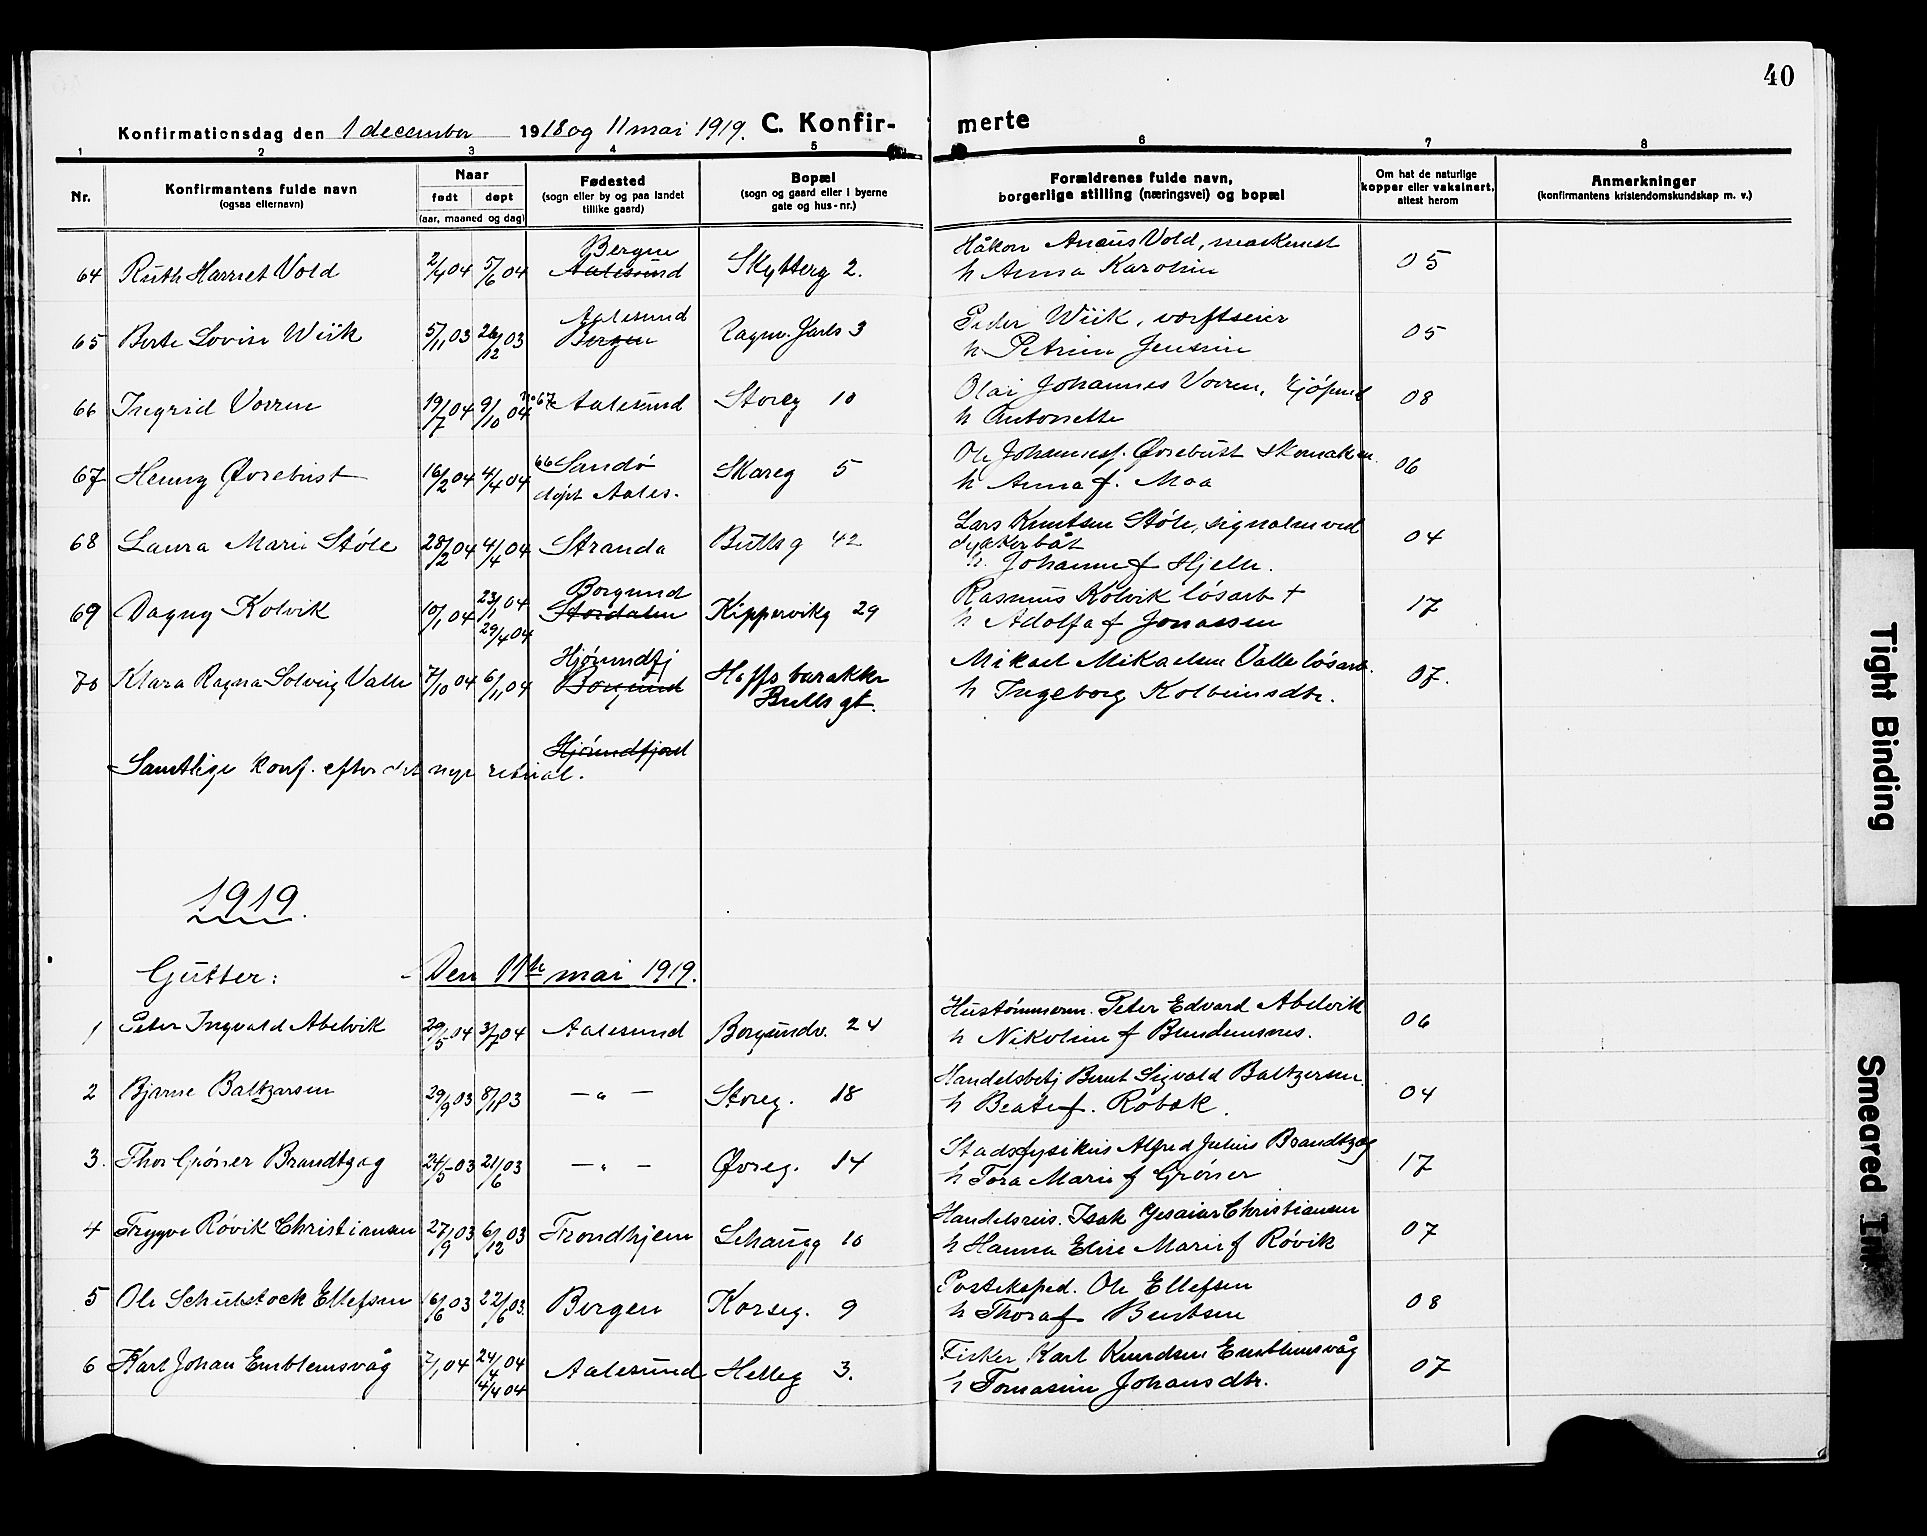 40
Konfirmationsdag den 1 december 1918 og 11 mai 1919. C. Konfirmerte
1 2 3 4 5 6 7 8
Nr.
Konfirmantens fulde navn
(ogsaa efternavn)
Naar
født døpt
(aar, maaned og dag)
Fødested
(sogn eller by og paa landet
tillike gaard)
Bopæl
(sogn og gaard eller i byerne
gate og hus-nr.)
Forældrenes fulde navn,
borgerlige stilling (næringsvei) og bopæl
Om hat de naturlige
kopper eller vaksinert,
attest herom
Anmerkninger
(konfirmantens kristendomskundskap m. v.)
64 Ruth Harriet Vold 2/4 04 5/6 04 Bergen Aalesund Skytterg 2. Håkon Vold, maskinist
h Anna Karoline 05
65 Berte Lovise Wiik 5/11 03 26/12 03 Aalesund Bergen Ragnv. Jarls 3 Peder Wiik, værftseier
h Petrine Jensine 05
66 Ingrid Vorren 19/7 04 9/10 04 no 67 Aalesund Storeg 10 Olai Johannes Vorren, kjøpmd
h Antonette 08
67 Henny Øvrebust 16/2 04 4/4 04 66 Sandø
døpt Aales. Skareg 5 Ole Johannesf. Øvrebust skomaker
h Anna f. Moa 06
68 Laura Marie Støle 28/2 04 4/4 04 Stranda Bullsg 42 Lars Knutsen Støle, signalm ved
dykkerbåt
h. Johanne f Hjelle. 04
69 Dagny Kolvik 10/1 04 23/1 04
29/4 04 Borgund Stordalen Kippervikg 29 Rasmus Kolvik løsarb +
h Adolfa f Jonassen 17
70 Klara Ragna Solveig Valle 7/10 04 6/11 04 Hjørundfj Borgund Hoffs barakker
Bulls gt. Mikael Mikaelsen Valle løsarb.
h Ingeborg Kolbeinsdtr. 07.
Hjørundfjord
Samtlige konf. efter det nye ritual.
1919.
Gutter: Den 11te mai 1919.
1 Peter Ingvald Abelvik 29/5 04 3/7 04 Aalesund Borgundv. 24 Hustømmerm. Peter Edvard Abelvik
h Nikoline f 06
2 Bjarne Baltzersen 29/9 03 8/11 03 — " — Storeg. 18 Handelsbetj Bernt Sigvald Baltzersen
h Beate f. Robak. 04
3. Thor Grøner Brandtzæg 24/5 03 21/6 03 — " — Øvreg. 14 Stadsfysikus Alfred Julius Brandtzæg
h Tora Marie f Grøner 17
4 Trygve Røvik Christiansen 27/9 03 6/12 03 Trondhjem Schaugg 10 Handelsreis. Isak Jesaias Christiansen
h Hanna Elise Marie f Røvik 07
5 Ole Schubstock Ellefsen 16/6 03 22/6 03. Bergen Korseg. 9 Postekspd. Ole Ellefsen
h Thora f Berntsen 08
6 Karl Johan Emblemsvåg 7/1 04 24/4 04
4/4 04 Aalesund Helleg 3. Fisker Karl Knudsen Emblemsvåg
h Tomasine Johansdtr. 07
Tight Binding
Smeared Ink